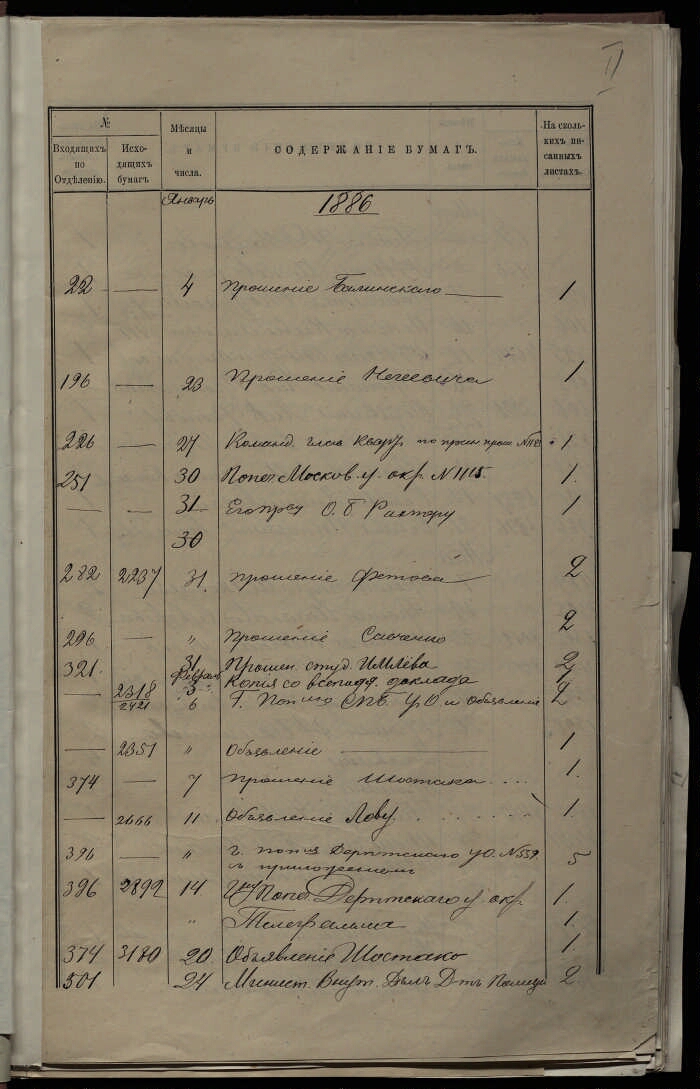 II
№
Входящихъ по Отдѣленію.
Исхо-
дящихъ
бумагъ
Мѣсяцы
и
числа.
СОДЕРЖАНІЕ БУМАГЪ.
На сколь-
кихъ пи-
санныхъ
листахъ.
Январь 1886
22 — 4 Прошеніе Балинскаго — 1
196 — 23 Прошеніе 1
226 — 27 Команд. глав. по прош. 1
251 30 Попеч. Москов. у. окр. N 1115. 1.
— — 31 О. Б. Рихтеру 1
30
282 2237 31. Прошеніе Фетова 2
296 — " Прошеніе Савченко 2
321. 31 Прошен. студ. 2
— 2318 Февраль 3 Копія со всеподд. доклада 4
2421 6 Г. Поп СПб. У. О и объявленіе 2.
— 2351 " Объявленіе — 1
374 — 7 Прошеніе Шостака . . . 1.
— 2666 11 Объявленіе Лову. . . . . . . . 1.
396 — " г. поп Дерптскаго У. О. N 559. 5
съ приложеніем
396 2892 14 Гну Попеч. Дерптскаго у. окр. 1.
" Телеграмма 1.
374 3180 20 Объявленіе Шостако 1.
501 24 Минист. Внут. Дѣлъ Д-тъ Полиціи 2.